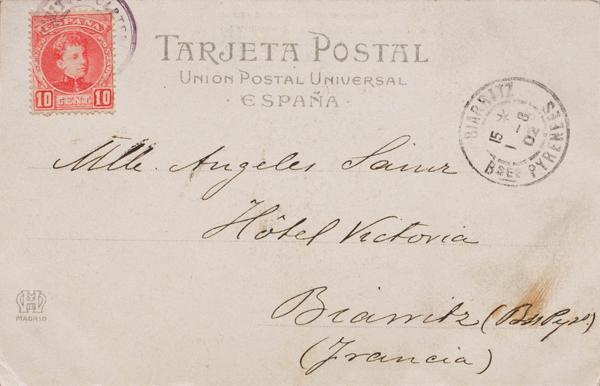 ESPAÑA
10 CENT. 10
TARJETA POSTAL
UNIÓN POSTAL UNIVERSAL
· ESPAÑA ·
BIARRITZ
15 *
1 - 8
02
BSES PYRENEES
Mlle. Angeles Sainz
Hôtel Victoria
Biarritz (Bss Pyrs.)
(Francia)
MADRID